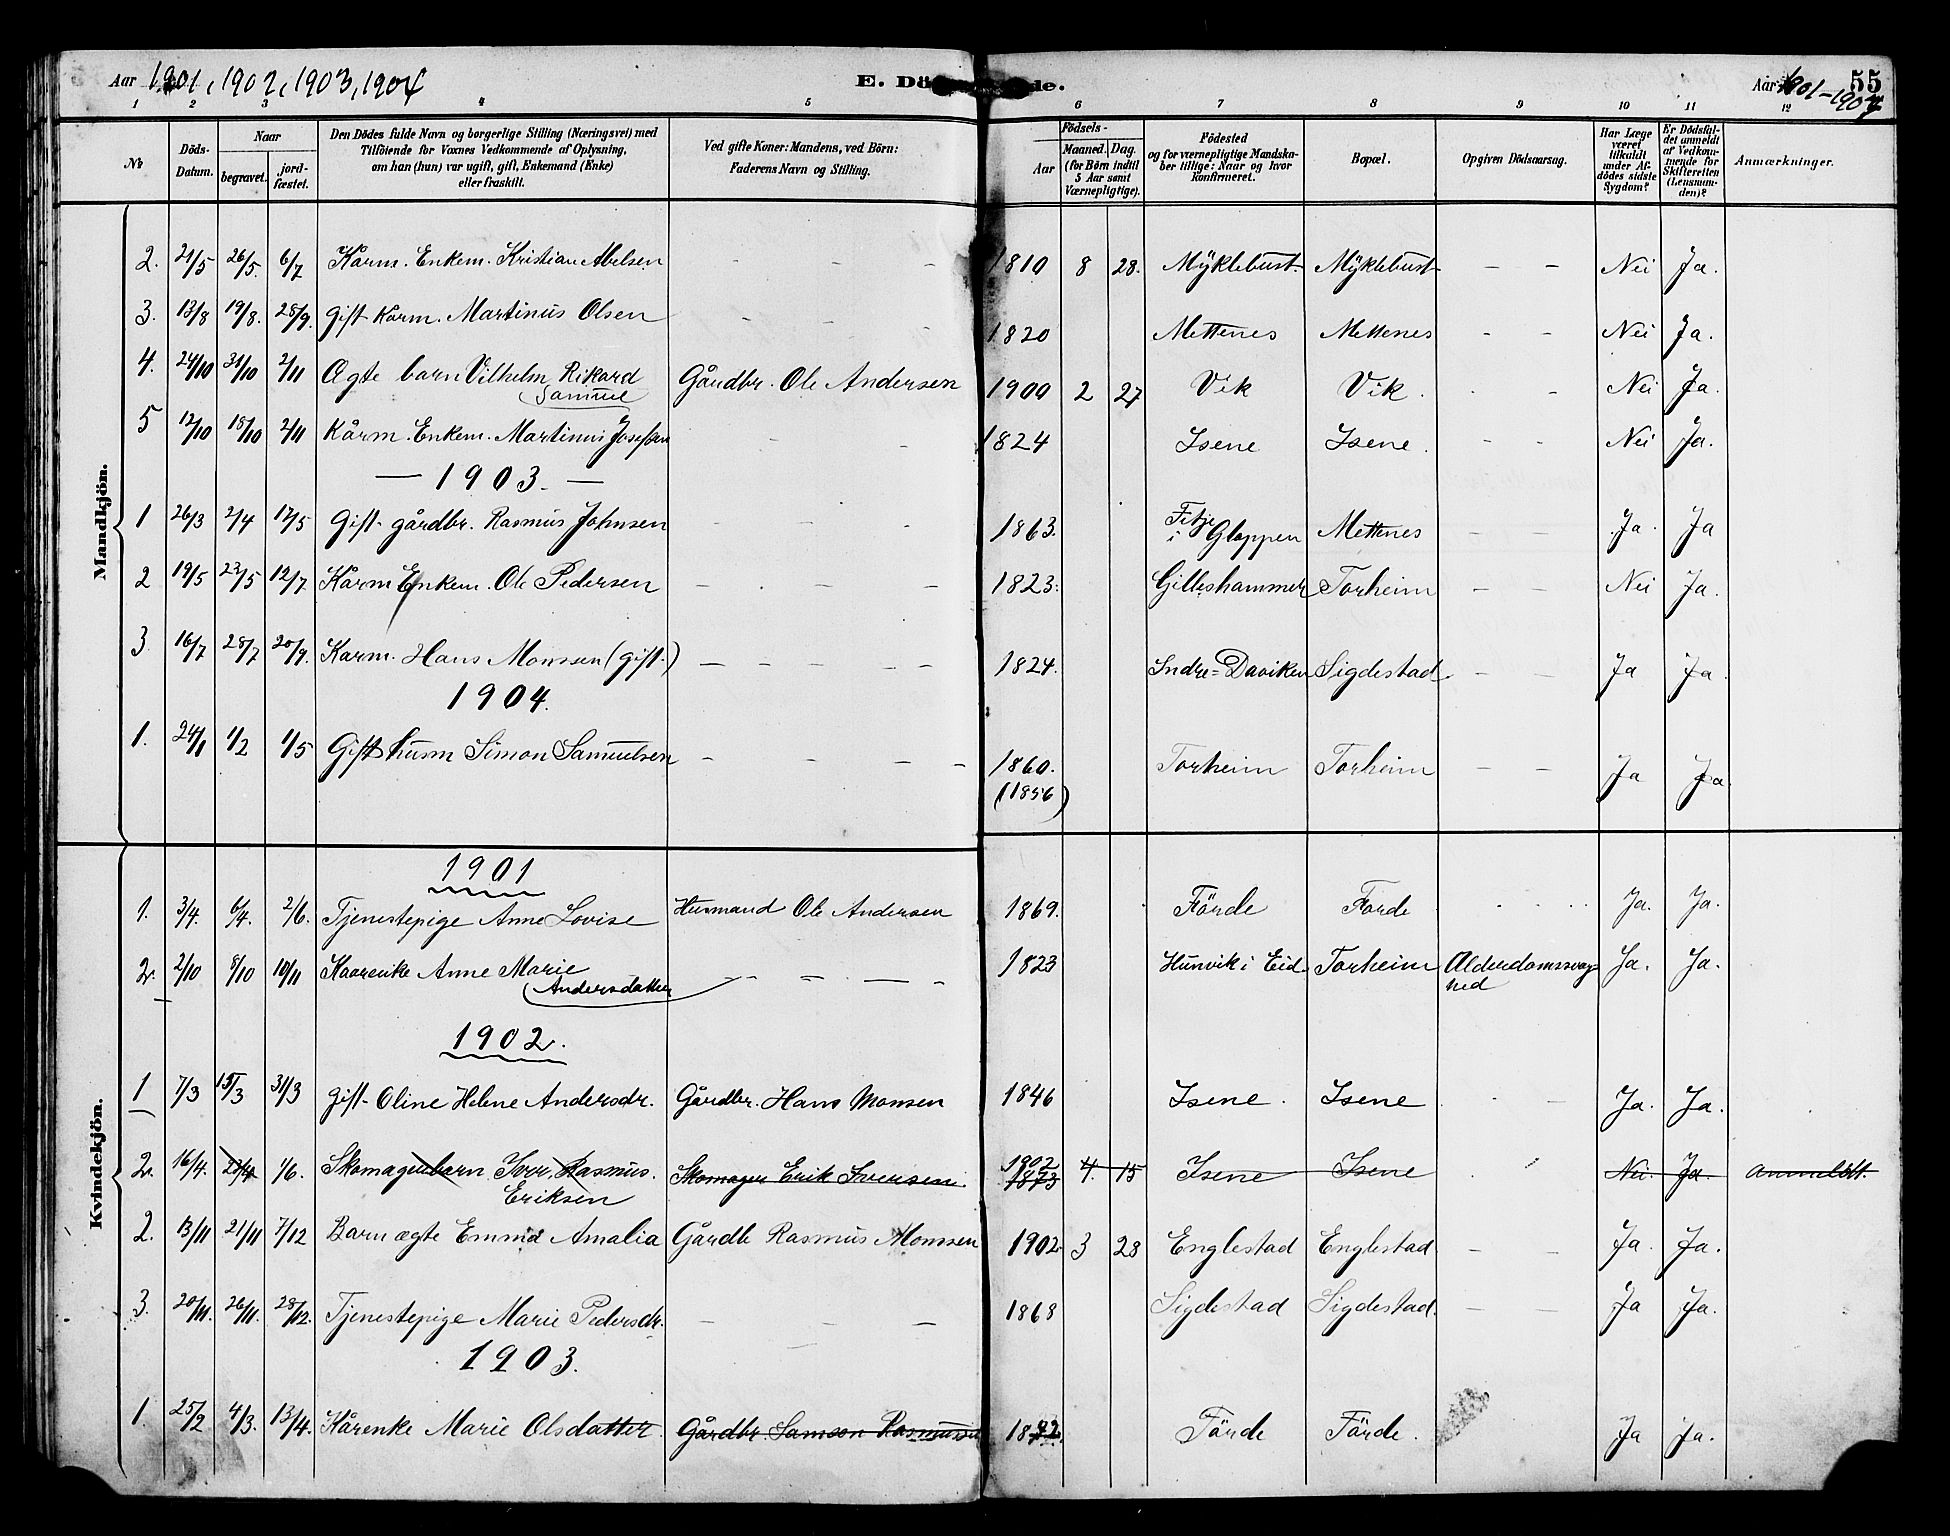 Aar 1901, 1902, 1903, 1904 E. Dö de. Aar 1901-1904 55
1 2 3 4 5 6 7 8 9 10 11 12
No Döds-Datum. Naar begravet. jordfæstet. Den Dödes fulde Navn og borgerlige Stilling (Næringsvei) med Tilföiende for Voxnes Vedkommende af Oplysning, om han (hun) var ugift, gift, Enkemand (Enke) eller fraskilt. Ved gifte Koner: Mandens, ved Börn: Faderens Navn og Stilling. Födsels- Aar Maaned. Dag. (for Börn indtil 5 Aar samt Værnepligtige). Födested og for værnepligtige Mandskaber tillige: Naar og hvor konfirmeret. Bopæl. Opgiven Dödsaarsag. Har Læge været tilkaldt under Afdödes sidste Sygdom? Er Dödsfaldet anmeldt af Vedkommende for Skifteretten (Lensmanden)? Anmærkninger.
Mandkjön.
2. 21/5 26/5. 6/7 Kårm. Enkem. Kristian Abelsen - - - 1810 8 28. Myklebust Myklebust - - Nei Ja.
3. 13/8 19/8. 28/9. gift Kårm. Martinus Olsen - - - 1820 Mettenes Mettenes - - Nei Ja.
4. 24/10 31/10 2/11 Ægte barn Vilhelm Rikard Gårdbr. Ole Andersen 1900 2 27 Vik Vik. - Nei Ja.
Samuel
5 12/10 18/10 2/11 Kårm. Enkem. Martinus Josefsen - - 1824 Isene Isene. - - Nei Ja.
— 1903. —
1 26/3 2/4 17/5 Gift gårdbr. Rasmus Johnsen - - - 1863. Fitje i Gloppen Mettenes - - Ja. Ja
2 19/5 23/5 12/7 Kårm Enkem. Ole Pedersen - - - - 1823. Gilleshammer Torheim - - Nei Ja.
3. 16/7 28/7 20/9. Kårm. Hans Monsen (gift.) - - - - - 1824. Indre-Daviken Sigdestad. - - Ja Ja.
1904.
1. 24/1 1/2 1/5 Gift husm Simon Samuelsen - - - - 1860. Torheim Torheim - - Ja Ja.
(1856)
Kvindekjön.
1901
1. 3/4. 6/4. 2/6. Tjenestepige Anne Lovise Husmand Ole Andersen 1869. Förde Förde Ja. Ja.
2. 2/10 8/10 10/11 Kaarenke Anne Marie - - — - 1823 Hunvik i Eid Torheim Alderdomssvag Ja. Ja.
Andersdatter hed
1902.
1 7/3 15/3 31/3 gift Oline Helene Andersdr. Gårdbr. Hans Monsen 1846 Isene. Isene - Ja. Ja.
2. 16/4. 23/4 1/6. Skomagerbarn Iver Rasmus. Skomager Erik Iversen. 1902 4. 15 Isene Isene Nei. Ja. anmeldt.
Eriksen 1873
2. 13/11 21/11 7/12 Barn ægte Emma Amalia Gårdb Rasmus Monsen 1902. 3 23 Englestad Englestad. - - Ja. Ja.
3. 20/11. 26/11. 28/12. Tjenestepige Marie Pedersdr. - - 1868 Sigdestad Sigdestad. - - Ja Ja.
1903.
1. 25/2 4/3. 13/4. Kårenke Marie Olsdatter. Gårdbr. Samson Rasmussen Förde Förde. Ja Ja.